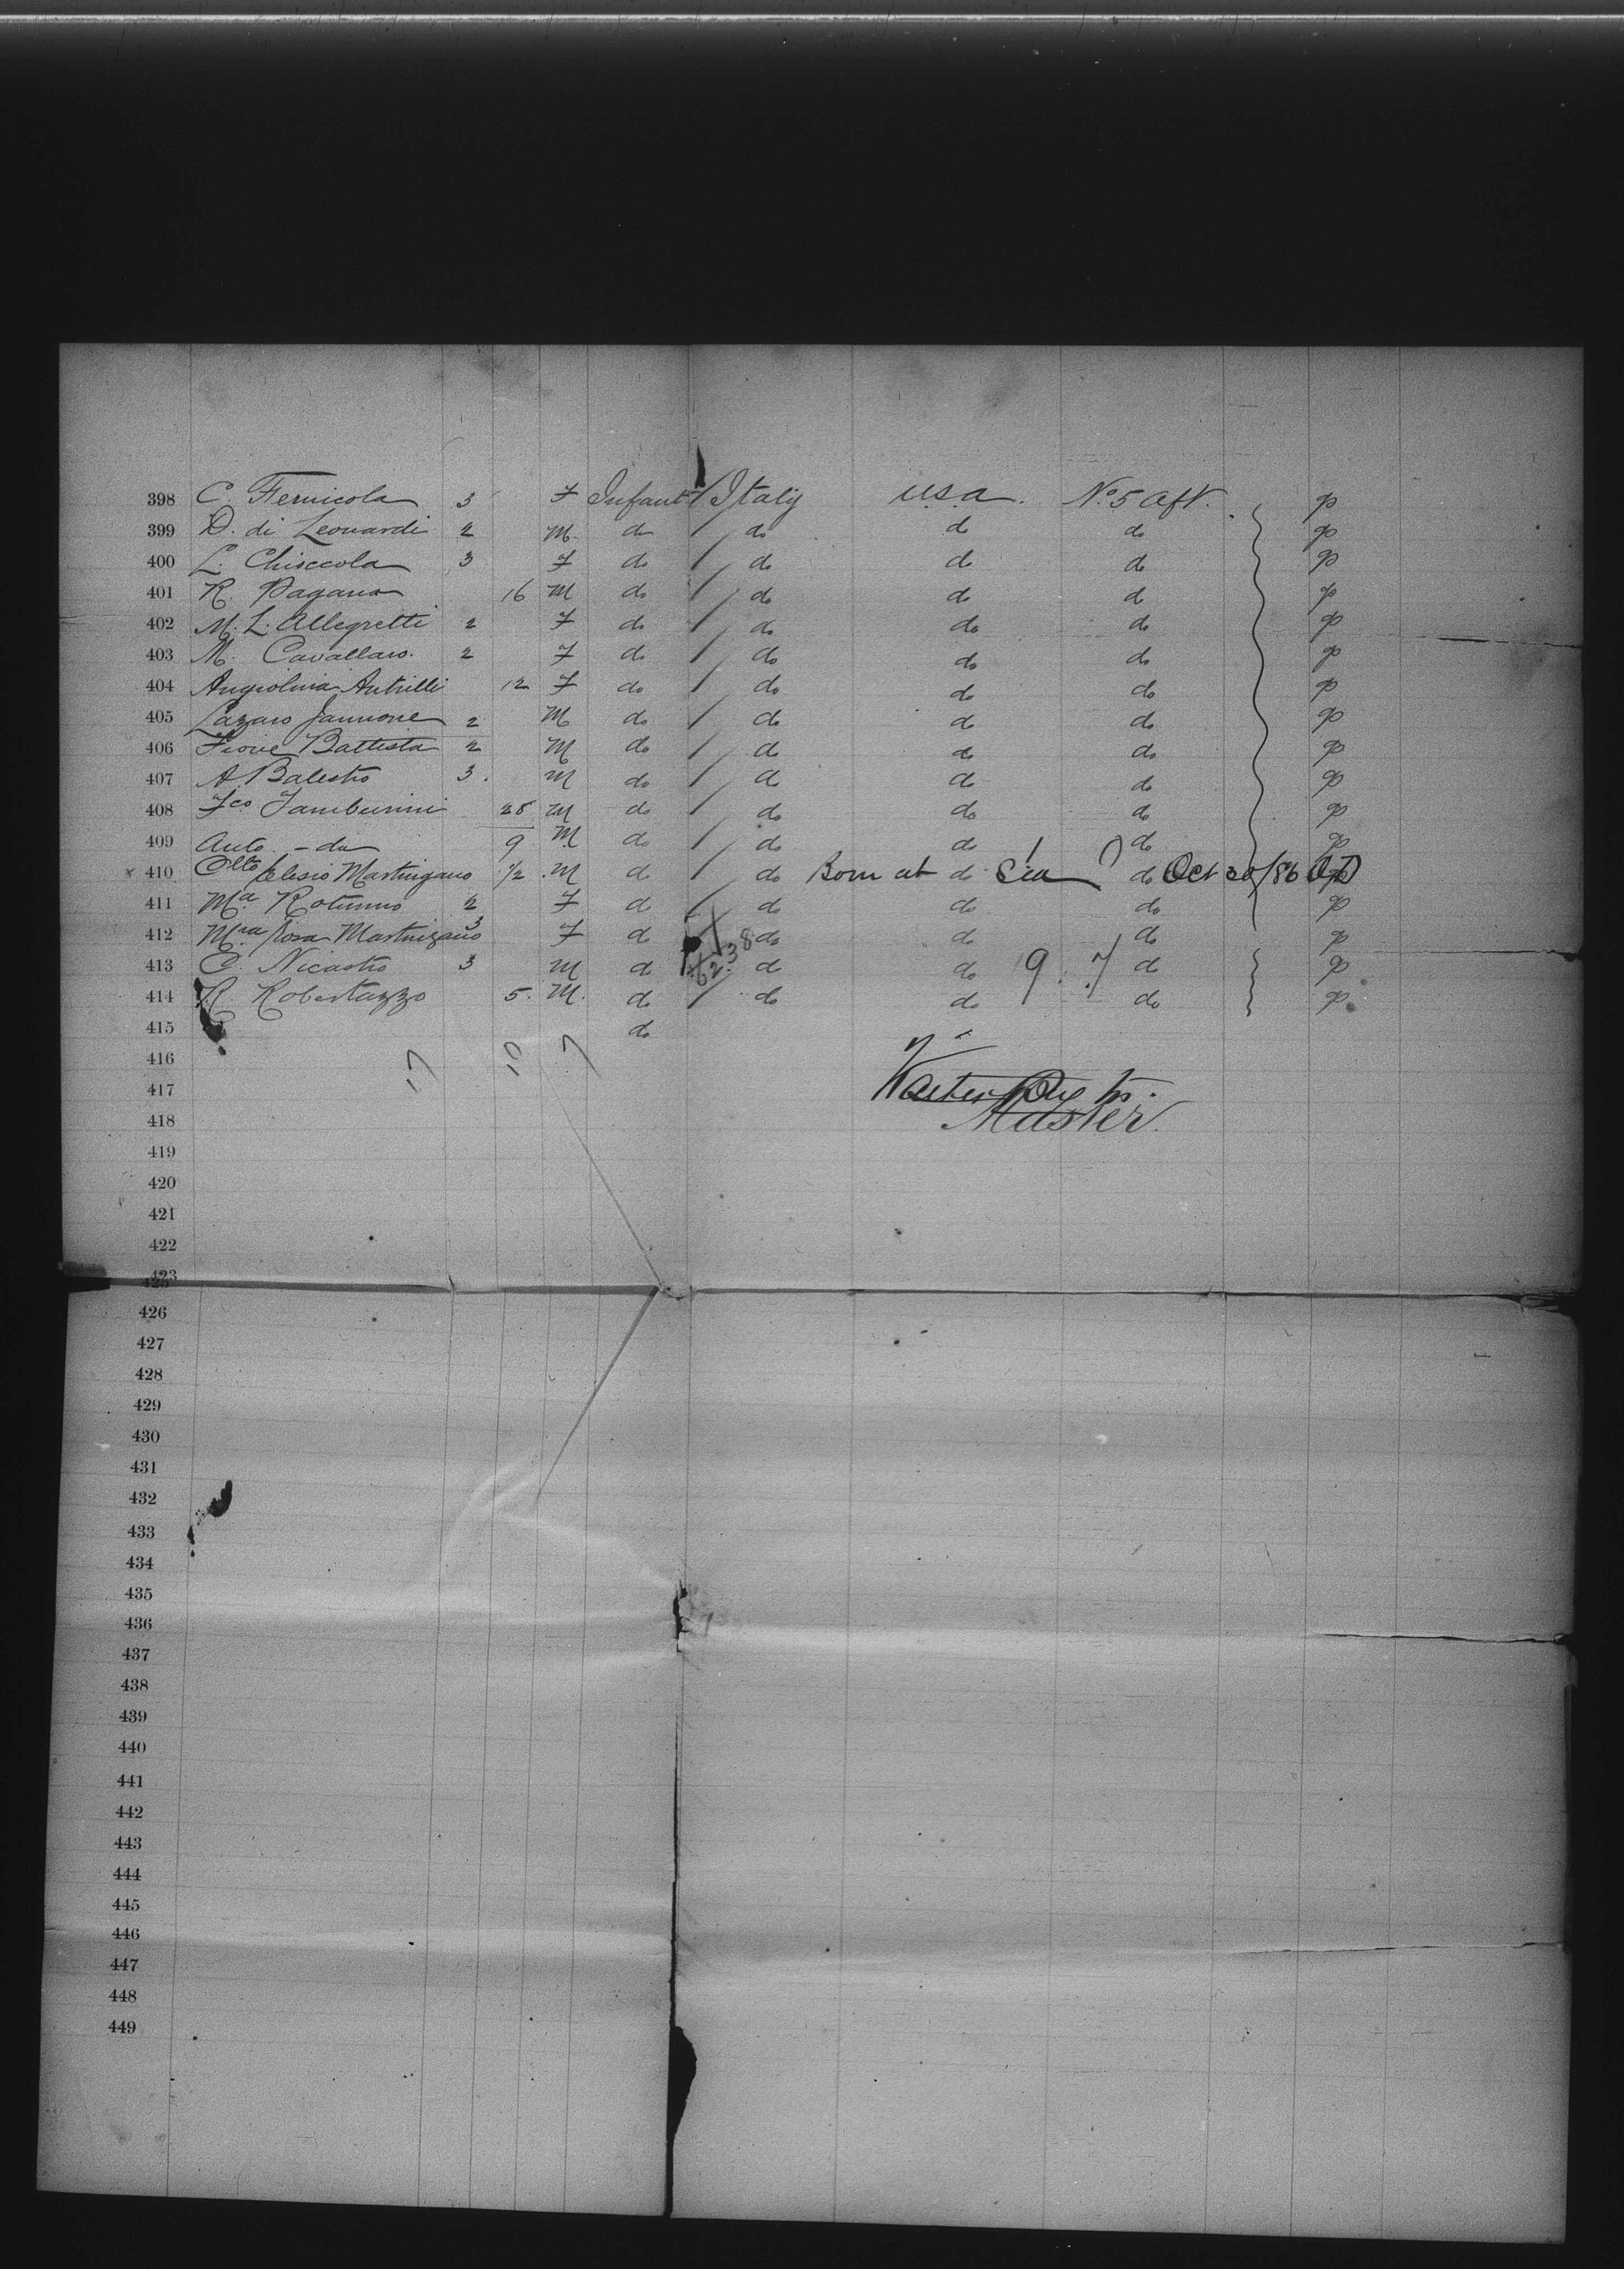 398 C. Fernicola 3 F Infant / Italy U.S.A. No. 5 Aft. p
399 D. di Leonardi 2 M do / do do do p
400 L. Chioccola 3 F do / do do do p
401 R. Pagano 16 M do / do do do p
402 M. L. Allegretti 2 F do / do do do p
403 M. Cavallaro. 2 F do / do do do p
404 Angiolina Antrilli 12 F do / do do do p
405 Lazaro Jannone 2 M do / do do do p
406 Fiore Battista 2 M do / do do do p
407 A Balestro 3. M do / do do do p
408 Fco Tamburini 28 M do / do do do p
409 Anto - do 9 M do / do do do p
410 Celesio Martnigano 1/2 M do / do Born at do Sea do Oct 20/86 p
411 Ma Rotunno 2 F do / do do do p
412 Mra Rosa Martnigano 3 F do do do do p
413 C. Nicastro 3 M do do do 9 . 7 do p
414 R. Robertazzo 5. M. do / do do do p
415 do
416 17 10 7
417 Walter
418 Master.
419
420
421
422
423
425
426
427
428
429
430
431
432
433
434
435
436
437
438
439
440
441
442
443
444
445
446
447
448
449